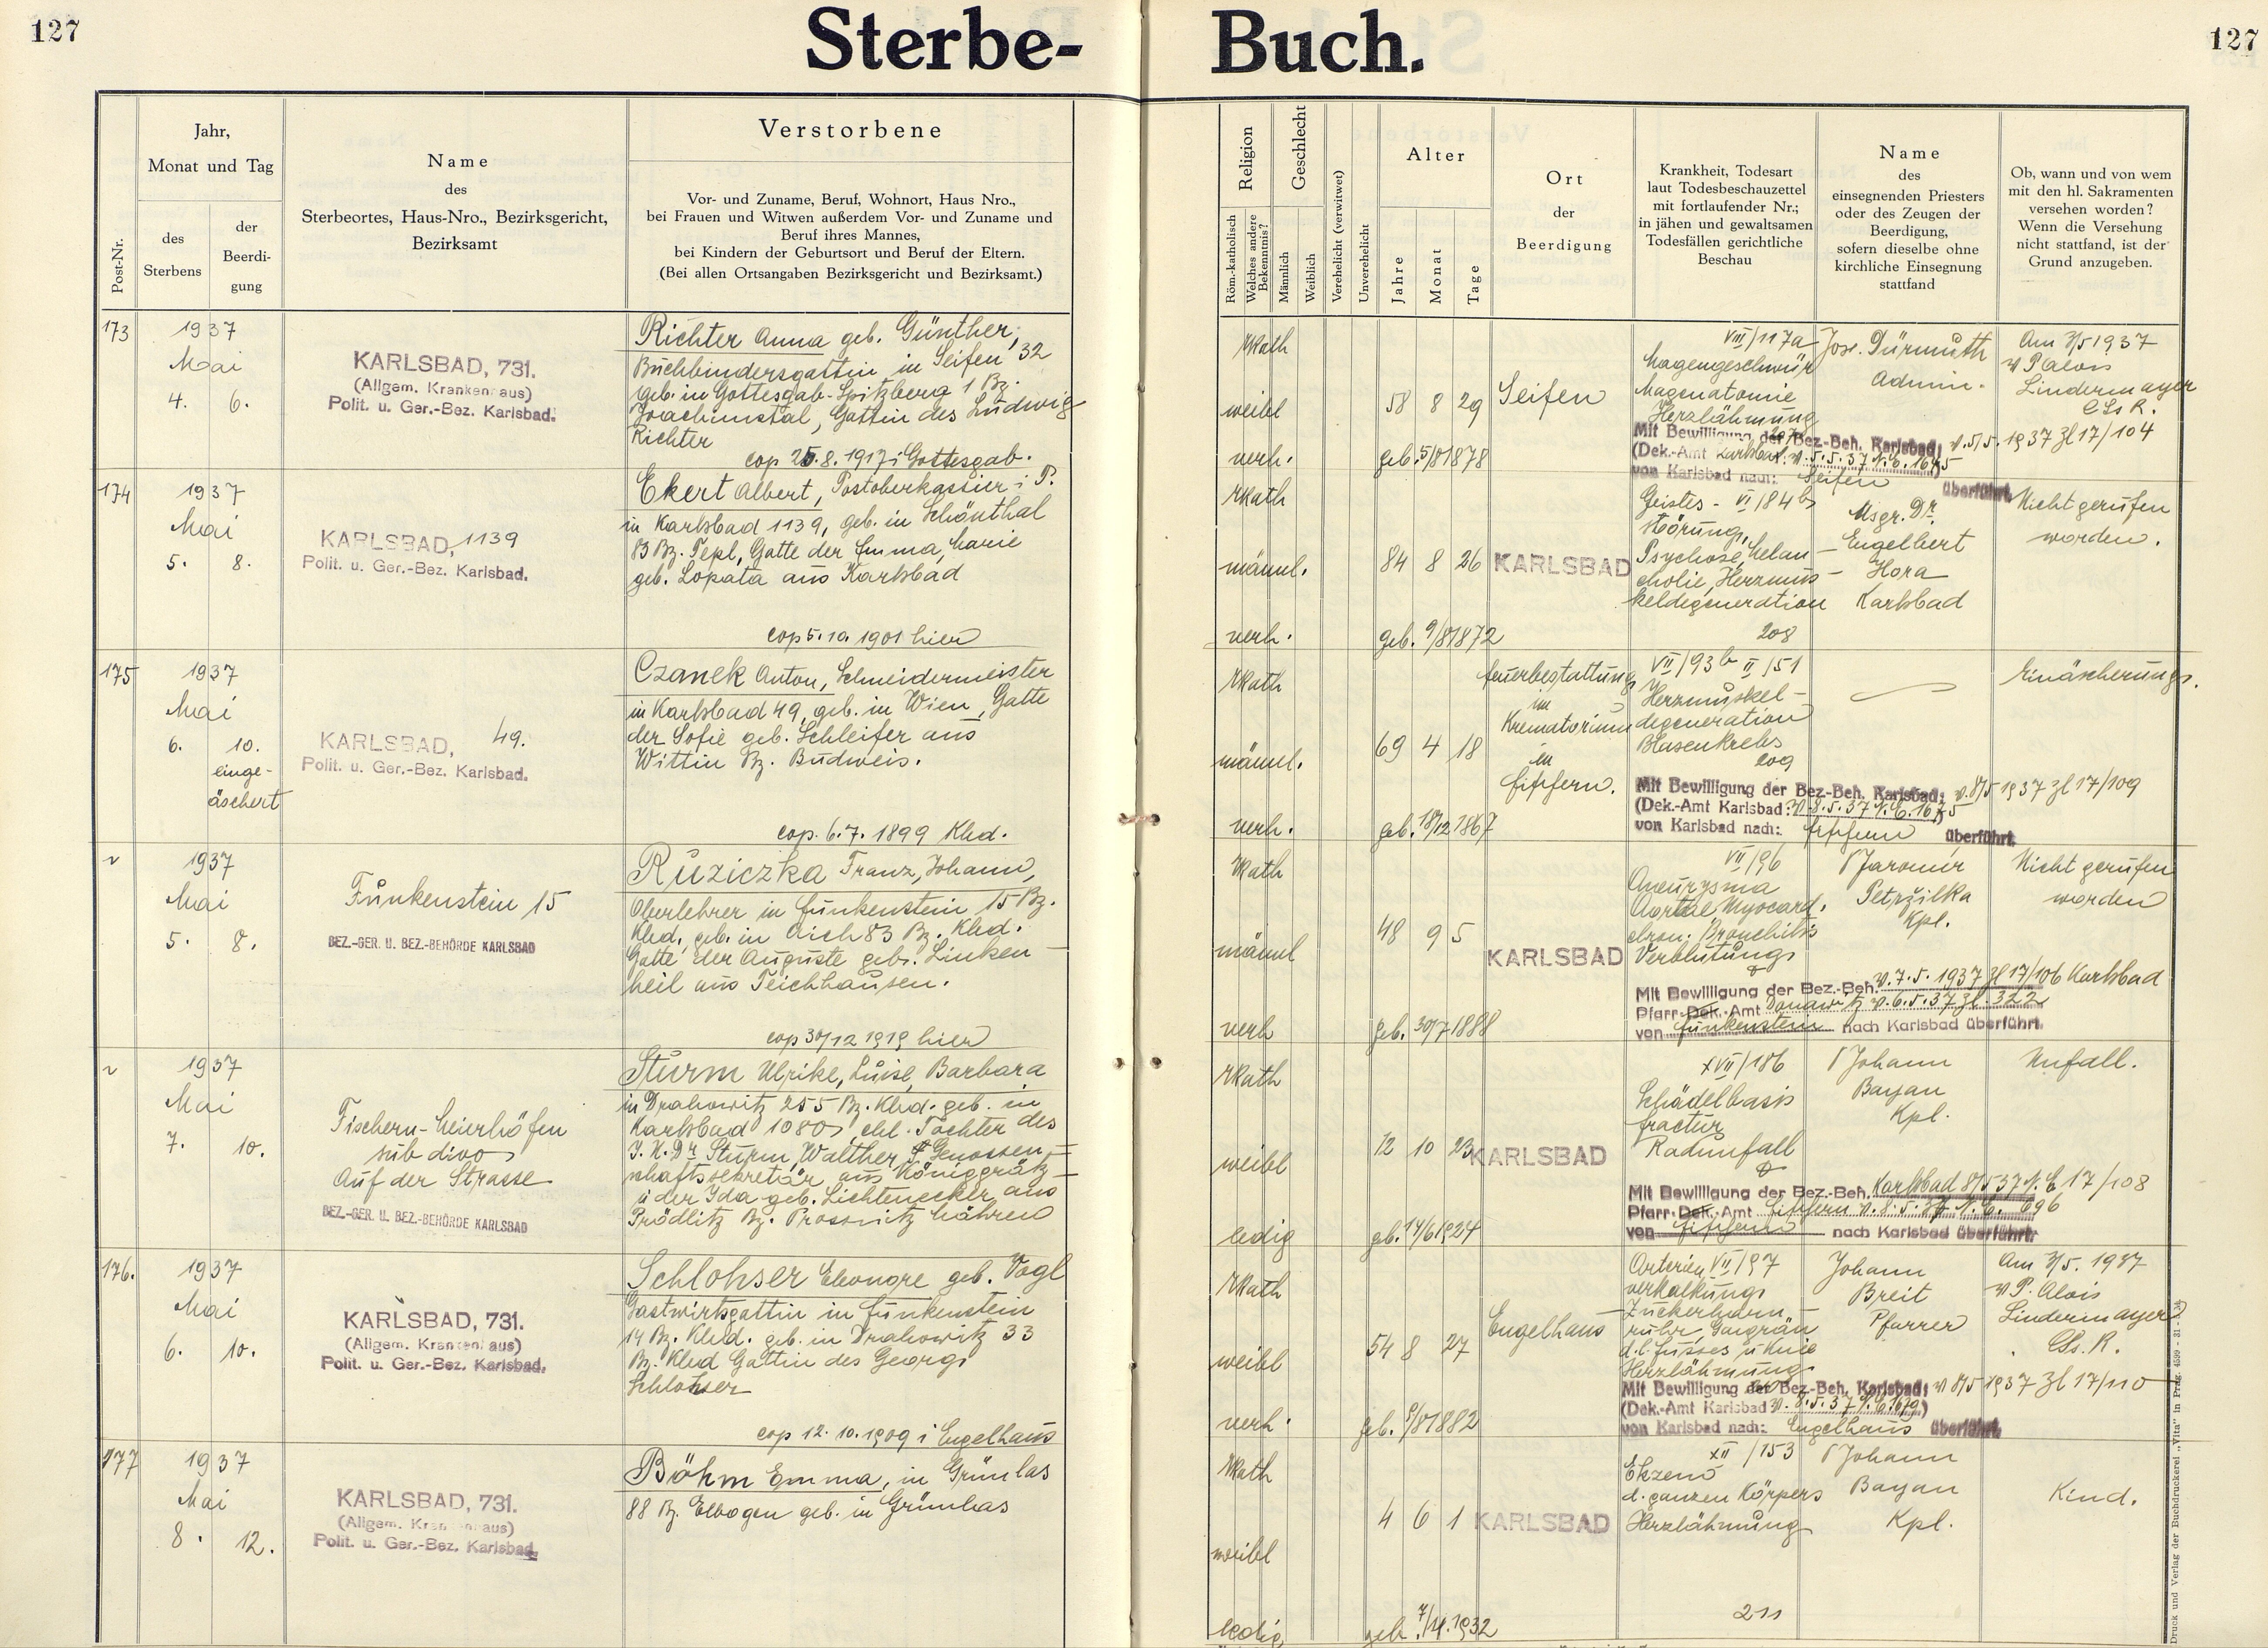 127
Sterbe-
Buch.
127
Post-Nr.
Jahr,
Monat und Tag
des
Sterbens
der
Beerdi-
gung
Name
des
Sterbeortes, Haus-Nro., Bezirksgericht,
Bezirksamt
Verstorbene
Vor- und Zuname, Beruf, Wohnort, Haus Nro.,
bei Frauen und Witwen außerdem Vor- und Zuname und
Beruf ihres Mannes,
bei Kindern der Geburtsort und Beruf der Eltern.
(Bei allen Ortsangaben Bezirksgericht und Bezirksamt.)
Religion
Röm.-katholisch
Welches andere
Bekenntnis?
Geschlecht
Männlich
Weiblich
Verehelicht (verwitwet)
Unverehelicht
Alter
Jahre
Monat
Tage
Ort
der
Beerdigung
Krankheit, Todesart
laut Todesbeschauzettel
mit fortlaufender Nr.;
in jähen und gewaltsamen
Todesfällen gerichtliche
Beschau
Name
des
einsegnenden Priesters
oder des Zeugen der
Beerdigung,
sofern dieselbe ohne
kirchliche Einsegnung
stattfand
Ob, wann und von wem
mit den hl. Sakramenten
versehen worden?
Wenn die Versehung
nicht stattfand, ist der
Grund anzugeben.
173
1937
Mai
4. 6.
KARLSBAD, 731.
(Allgem. Krankenhaus)
Polit. u. Ger.-Bez. Karlsbad.
Richter Anna geb. Günther,
Buchbindersgattin in Seifen 32
geb. in Gottesgab-Spitzberg 1 Bz.
Joachimstal, Gattin des Ludwig
Richter
cop 25.8.1917 i Gottesgab.
rkath
weibl
verh.
58 8 29
geb. 5/8 1878
Seifen
VIII/117a
Magengeschwür
Magenatonie
Herzlähmung
Mit Bewilligung der Bez-Beh. Karlsbad; v. 5/5. 1937 Zl 17/104
(Dek.-Amt Karlsbad. v. 5.5.37 N.E. 1645
von Karlsbad nach: Seifen überführt
Jos. Dürmuth
Admin.
Am 3/5 1937
v P Alois
Lindermayer
CSsR.
174
1937
Mai
5. 8.
KARLSBAD, 1139
Polit. u. Ger.-Bez. Karlsbad.
Ekert Albert, Postoberkassier i P.
in Karlsbad 1139, geb. in Schönthal
83 Bz. Tepl, Gatte der Emma, Marie
geb. Lopata aus Karlsbad
cop 5.10.1901 hier
rkath
männl.
verh.
84 8 26
geb. 9/8 1872
KARLSBAD
Geistes- VI/84b
störung,
Psychose, Melan-
cholie, Herzmus-
keldegeneration
208
Msgr. Dr.
Engelbert
Hora
Karlsbad
Nicht gerufen
worden.
175
1937
Mai
6. 10.
einge-
äschert
KARLSBAD, 49.
Polit. u. Ger.-Bez. Karlsbad.
Czanek Anton, Schneidermeister
in Karlsbad 49, geb. in Wien, Gatte
der Sofie geb. Schleifer aus
Wittin Bz. Budweis.
cop. 6.7.1899 Kbd.
rkath
männl.
verh.
69 4 18
geb. 18/12 1867
Feuerbestattung
im
Krematorium
in
Fischern.
VII/93b II/51
Herzmuskel-
degeneration
Blasenkrebs
209
Mit Bewilligung der Bez-Beh. Karlsbad; v. 8/5 1937 Zl 17/109
(Dek.-Amt Karlsbad: v. 8.5.37 N.E. 1675
von Karlsbad nach: Fischern überführt
Einäscherung.
1937
Mai
5. 8.
Funkenstein 15
BEZ.-GER. U. BEZ.-BEHÖRDE KARLSBAD
Ruziczka Franz, Johann,
Oberlehrer in Funkenstein 15 Bz.
Kbd. geb. in Aich 83 Bz. Kbd.
Gatte der Auguste geb. Linken-
heil aus Teichhausen.
cop 30/12 1919 hier
rkath
männl
verh
48 9 5
geb. 30/7 1888
KARLSBAD
VII/96
Aneurysma
Aortae, Myocard.
chron. Bronchitis
Verblutung
Mit Bewilligung der Bez-Beh. v. 7.5.1937 Zl 17/106 Karlsbad
Pfarr-Dek.-Amt Donawitz v. 6.5.37 Zl. 322
von Funkenstein nach Karlsbad überführt.
P Jaromir
Petržilka
Kpl.
Nicht gerufen
worden
1937
Mai
7. 10.
Fischern-Meierhöfen
sub divo
Auf der Strasse
BEZ.-GER. U. BEZ.-BEHÖRDE KARLSBAD
Sturm Ulrike, Luise, Barbara
in Drahowitz 255 Bz. Kbd. geb. in
Karlsbad 1080, ehl. Tochter des
J.U.Dr. Sturm Walther, Genossen-
schaftssekretär aus Königgrätz
u der Ida geb. Lichtenecker aus
Prödlitz Bz. Prossnitz Mähren
rkath
weibl
ledig
12 10 23
geb. 14/6 1924
KARLSBAD
XVII/186
Schädelbasis
fractur
Radunfall
Mit Bewilligung der Bez.-Beh. Karlsbad 8/5 37 N.E 17/108
Pfarr-Dek.-Amt Fischern v. 8.5.37 N.E. 696
von Fischern nach Karlsbad überführt.
P Johann
Bayan
Kpl.
Unfall.
176.
1937
Mai
6. 10.
KARLSBAD, 731.
(Allgem. Krankenhaus)
Polit. u. Ger.-Bez. Karlsbad.
Schlohser Eleonore geb. Vogl
Gastwirtsgattin in Funkenstein
14 Bz. Kbd. geb. in Drahowitz 33
Bz. Kbd Gattin des Georg
Schlohser
cop 12.10.1909 i Engelhaus
rkath
weibl
verh.
54 8 27
geb. 9/8 1882
Engelhaus
Arterien VII/97
verkalkung
Zuckerharn-
ruhr, Gangrän
d. l. Fusses u Knie
Herzlähmung
Mit Bewilligung der Bez-Beh. Karlsbad; v 8/5 1937 Zl 17/110
(Dek.-Amt Karlsbad v. 8.5.37 N.E. 1679.)
von Karlsbad nach: Engelhaus überführt.
Johann
Breit
Pfarrer
Am 3/5. 1937
v P. Alois
Lindermayer
CSs.R.
177
1937
Mai
8. 12.
KARLSBAD, 731.
(Allgem. Krankenhaus)
Polit. u. Ger.-Bez. Karlsbad.
Böhm Emma, in Grünlas
88 Bz. Elbogen geb. in Grünlas
rkath
weibl
ledig
4 6 1
geb. 7/11. 1932
KARLSBAD
XII/153
Ekzem
d. ganzen Körpers
Herzlähmung
211
P Johann
Bayan
Kpl.
Kind.
Druck und Verlag der Buchdruckerei „Vita" in Prag.